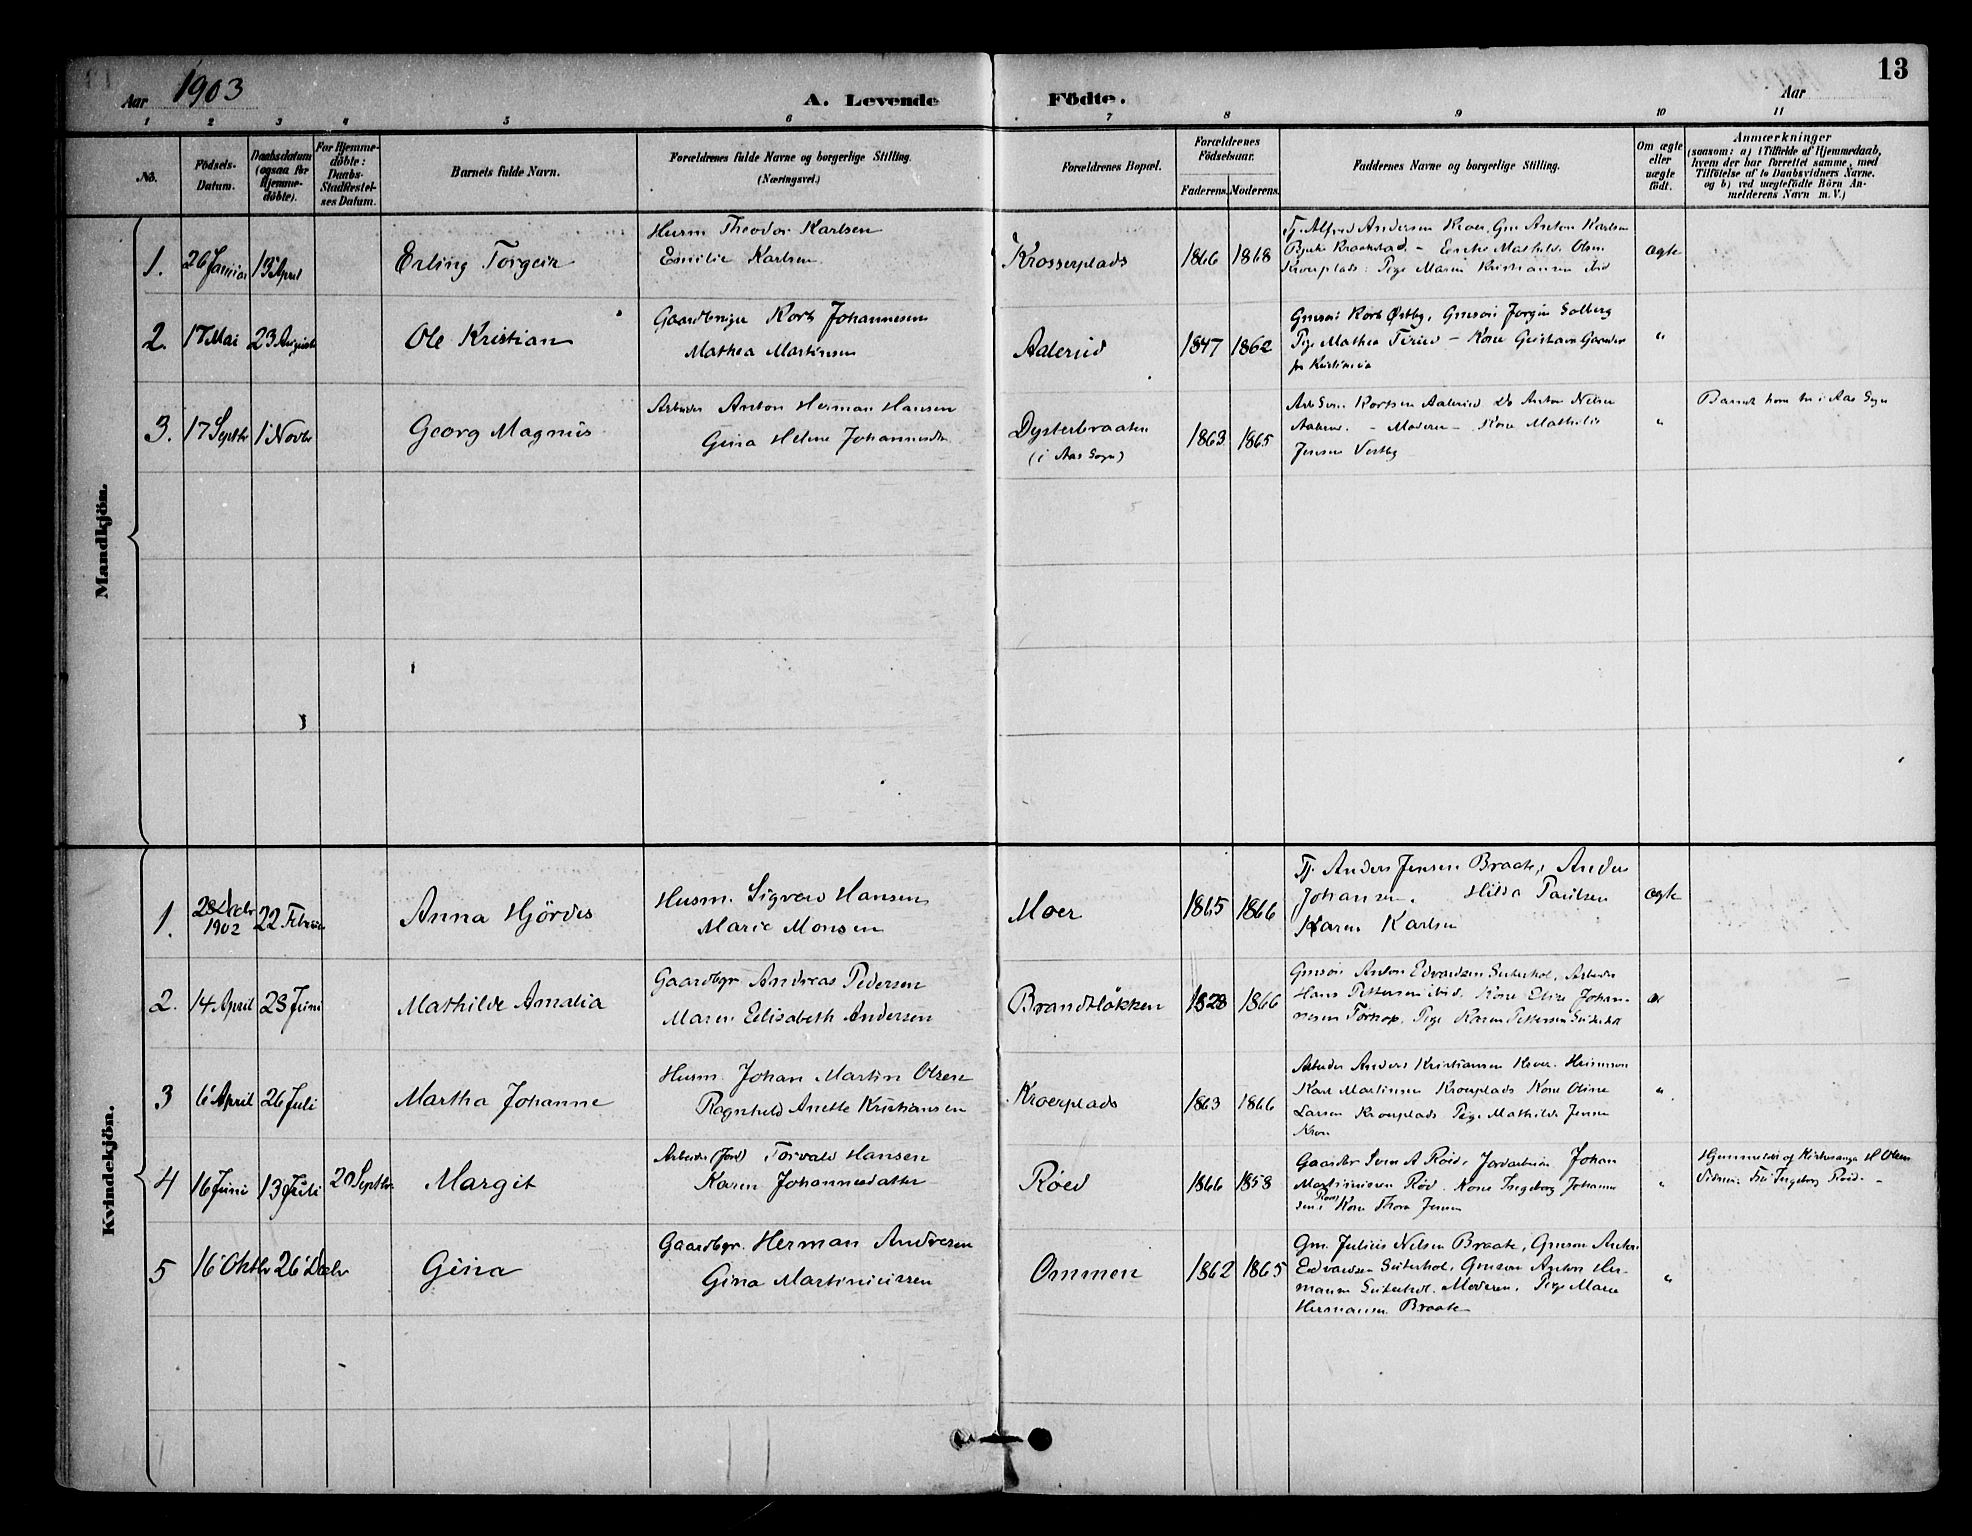 13
Aar 1903
A. Levende Födte.
Aar
1 2 3 4 5 6 7 8 9 10 11
No.
Födsels-Datum.
Daabsdatum (ogsaa for Hjemme-döbte).
For Hjemme-döbte: Daabs-Stadfæstel-ses Datum.
Barnets fulde Navn.
Forældrenes fulde Navne og borgerlige Stilling.
(Næringsvei.)
Forældrenes Bopæl.
Forældrenes Födselsaar.
Faderens. Moderens.
Faddernes Navne og borgerlige Stilling.
Om ægte eller uægte födt.
Anmærkninger
(saasom: a) i Tilfælde af Hjemmedaab,
hvem der har forrettet samme, med
Tilföielse af to Daabsvidners Navne.
og b) ved uægtefödte Börn An-
melderens Navn m.V.)
Mandkjön.
1. 26 Januar 13 April Erling Torgeir
Husm Theodor Karlsen
Emilie Karlsen
Krosserplads 1866 1868
Tj. Alfred Andersen Kroer, Gm Anton Karlsen
Kraakstad - Enke Mathilde Olsen
Kroerplads. Pige Maren Kristiansen ibid
ægte
2. 17 Mai 23 August Ole Kristian
Gaardbruger Kort Johannesen
Mathea Martinsen
Aalerud 1847 1862
Gmsøn Kort Østby, Gmsøn Jørgen Solberg
Pige Mathea - Kone
fra Kristiania
"
3. 17 Septbr 1 Novbr Georg Magnus
Arbeider Anton Herman Hansen
Gina Helene Johannesdtr
Dysterbraaten
(i Aas Sogn)
1863 1865
Arb Sven Kortsen Aalerud Do Anton Nilsen
Aalerud. - Moderen - Kone Mathilde
Jensen Vestby
"
Barnet i Aas Sogn
Kvindekjön.
1. 28 Decbr 1902 22 Februar Anna Hjördis
Husm. Sigvard Hansen
Marie Monsen
Moer 1865 1866
Tj. Anders Jensen Braate, Anders
Johansen. Hilda Paulsen
Karen Karlsen
ægte
2. 14 April 28 Juni Mathilde Amalia
Gaardbgr Andreas Pedersen
Maren Elisabeth Andersen
Brandtløkken 1828 1866
Gmsøn Anton Edvardsen Seiterhol, Arbeider
Hans Pettersen ibid. Kone Elise Johan-
nesen Pige Karen Pettersen Seiterhol
"
3 6 April 26 Juli Martha Johanne
Husm. Johan Martin Olsen
Ragnhild Anette Kristiansen
Kroerplads 1863 1866
Arbeider Anders Kristiansen Kroer. Husmann
Karl Martinsen Kroerplads Kone Oline
Larsen Kroerplads Pige Mathilde Jensen
Kroer
"
4 16 Juni 13 Juli 20 Septbr Margit
Arbeider (Jord) Torvald Hansen
Karen Johannesdatter
Röed 1866 1858
Gaardbr Sven A Röed, Jordarbeider Johan
Martiniusen Röd. Kone Ingeborg Johanne
sen Röed, Kone Thora Jensen
"
Hjemmedöbt af Kirkesanger H Olsen
Vidner: Fru Ingeborg Röed -
5 16 Oktbr 26 Decbr Gina
Gaardbgr. Herman Andresen
Gina Martiniussen
Ommen 1862 1865
Gm. Julius Nilsen Braate, Gmsøn Anton
Edvardsen Seiterhol, Gmsøn Anton Her-
mansen Seiterhol. Moderen. Pige Marie
Hermansen Braate
"